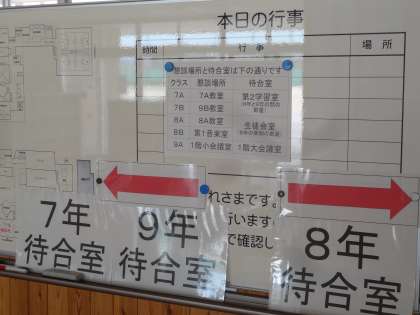 本日の行事
時間 行事 場所
懇談場所と待合室は下の通りです
クラス 懇談場所 待合室
7A 7A教室 第2学習室
7B 9B教室
8A 8A教室 生徒会室
8B 第1音楽室
9A 1階小会議室 1階大会議室
れさまです。
行います
で確認し
7年
待合室
9年
待合室
8年
待合室